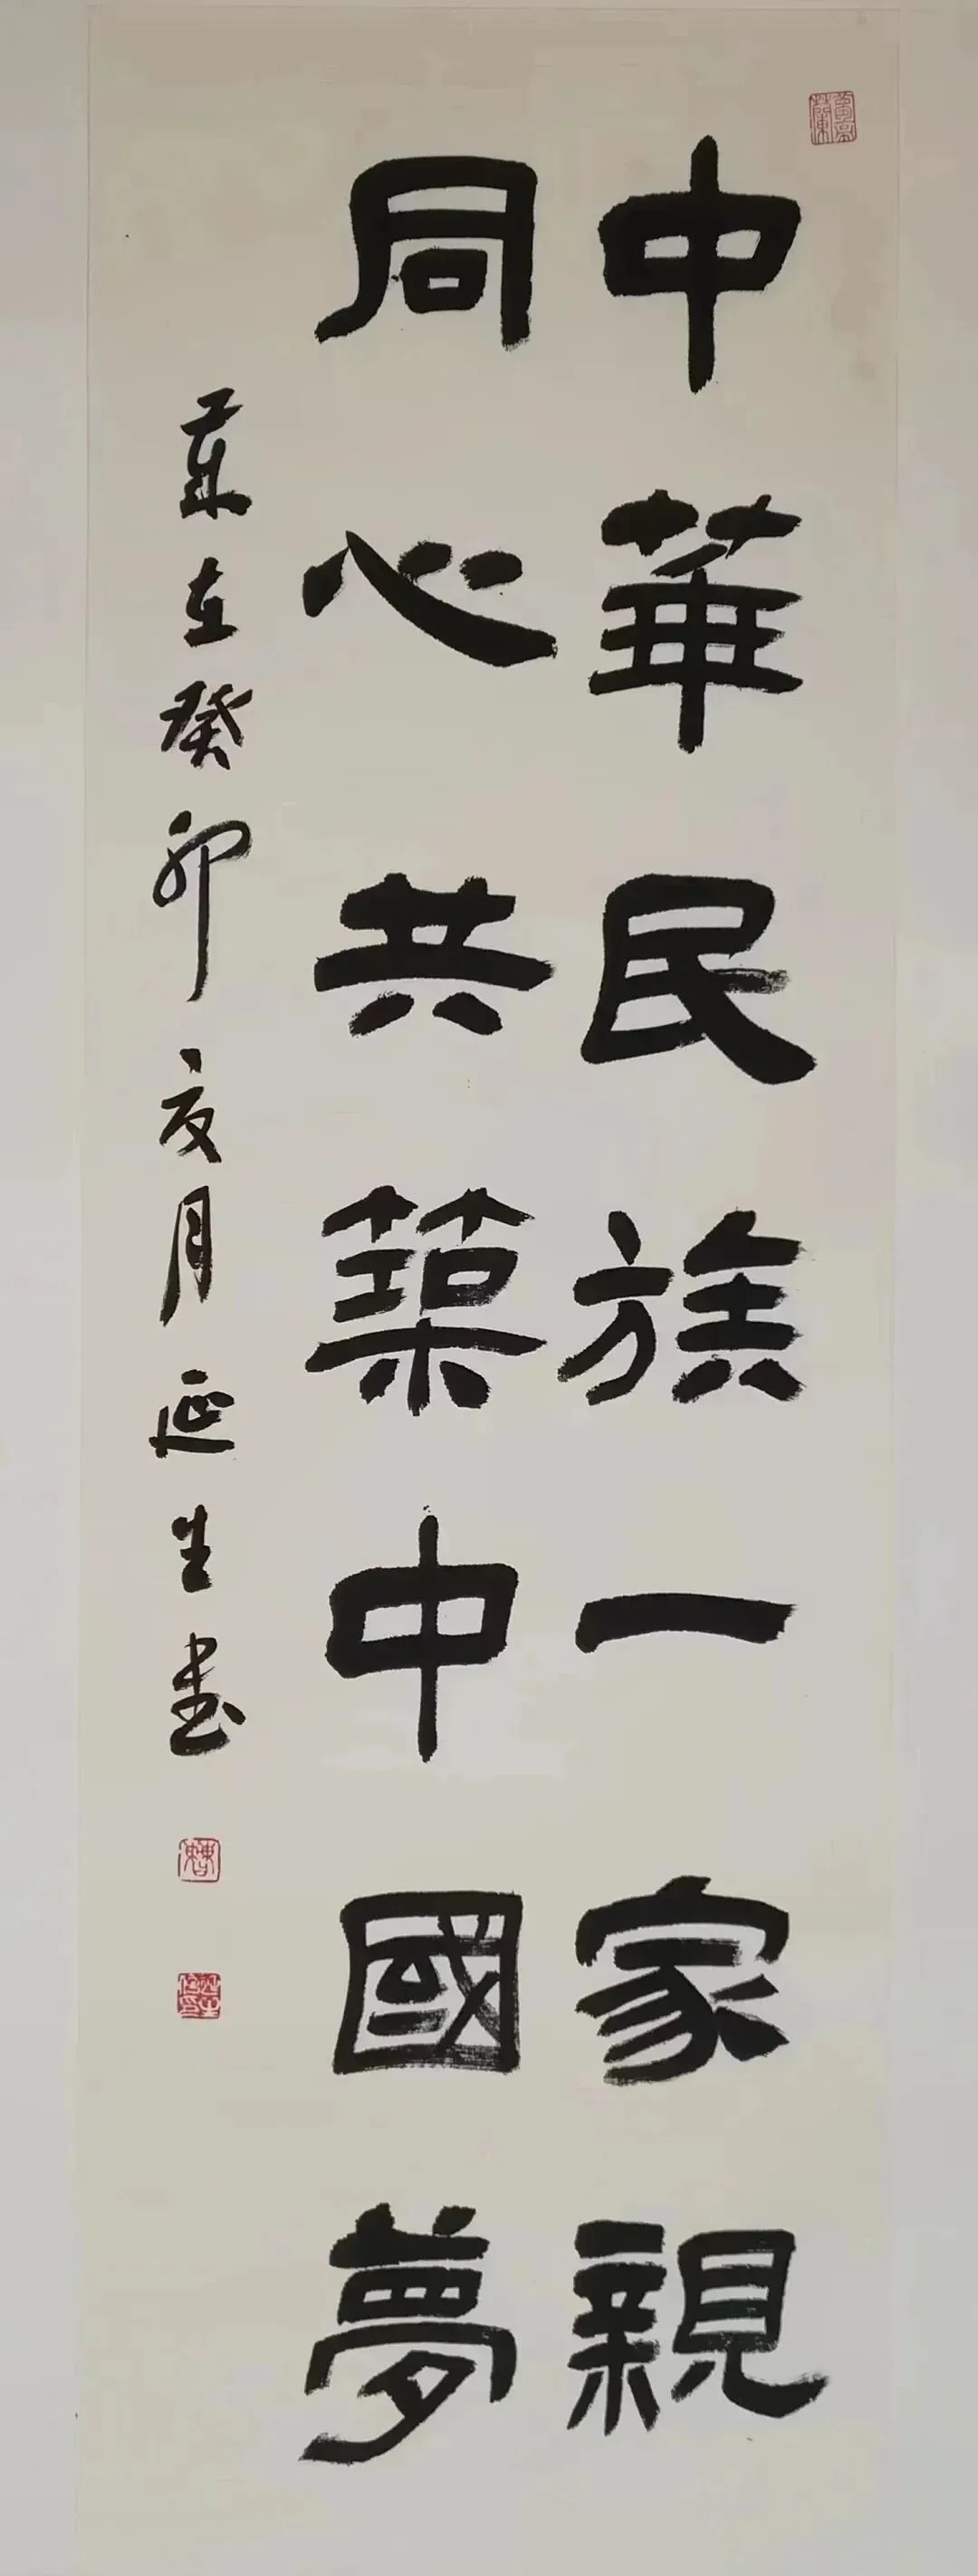 中華民族一家親
同心共築中國夢
歲在癸卯夏月延生書